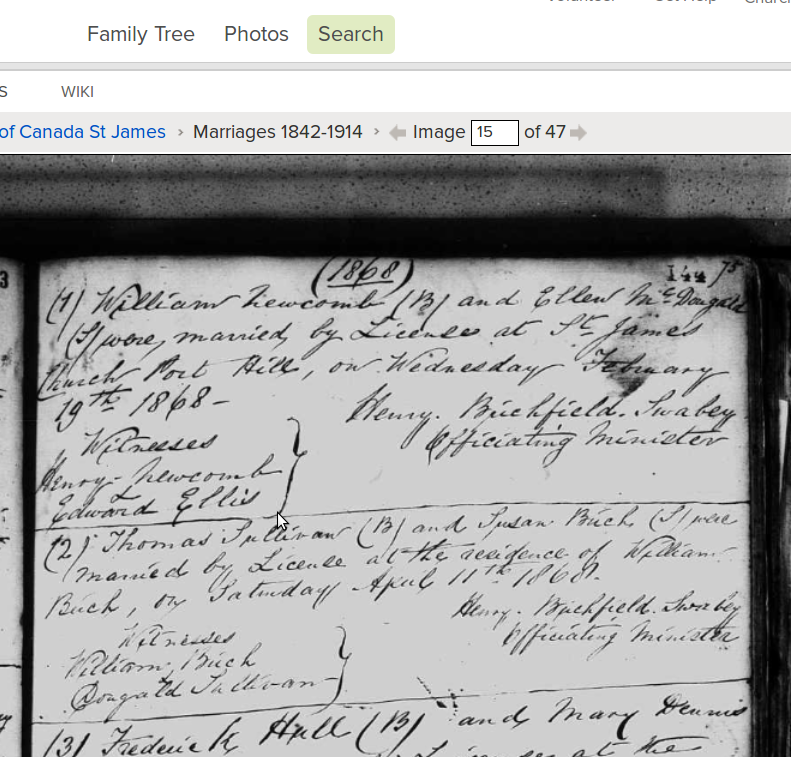 Family Tree Photos Search
WIKI
of Canada St James › Marriages 1842-1914 › Image 15 of 47
(1868)
144 75
(1) William Newcomb (B) and Ellen McDougald
(S) were, married, by License at St. James
Church Port Hill, on Wednesday February
19th 1868-
Henry. Birchfield. Swabey
Officiating Minister
Witnesses
Henry Newcomb
Edward Ellis
(2) Thomas Sullivan (B) and Susan Birch (S) were
married by License at the residence of William
Birch, on Saturday April 11th 1868.
Henry. Birchfield. Swabey
Officiating Minister
Witnesses
William Birch
Dougald Sullivan
(3) Frederick Hall (B) and Mary Dennis
at the